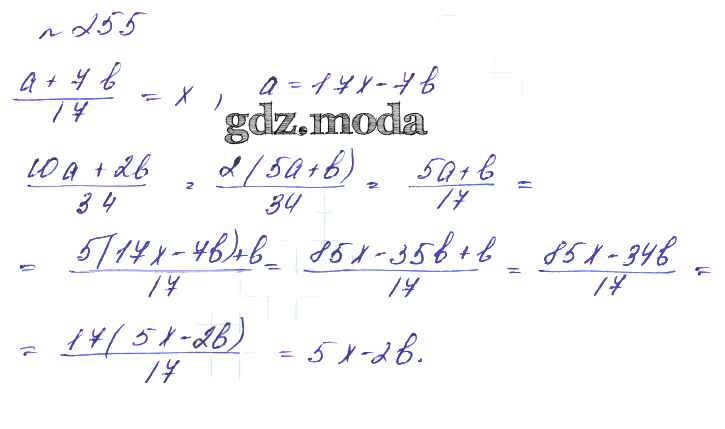 № 255
(a + 7b)/17 = x, a = 17x - 7b
gdz.moda
(10a + 2b)/34 = 2(5a+b)/34 = (5a+b)/17 =
= (5(17x - 7b)+b)/17 = (85x - 35b + b)/17 = (85x - 34b)/17 =
= 17(5x - 2b)/17 = 5x - 2b.